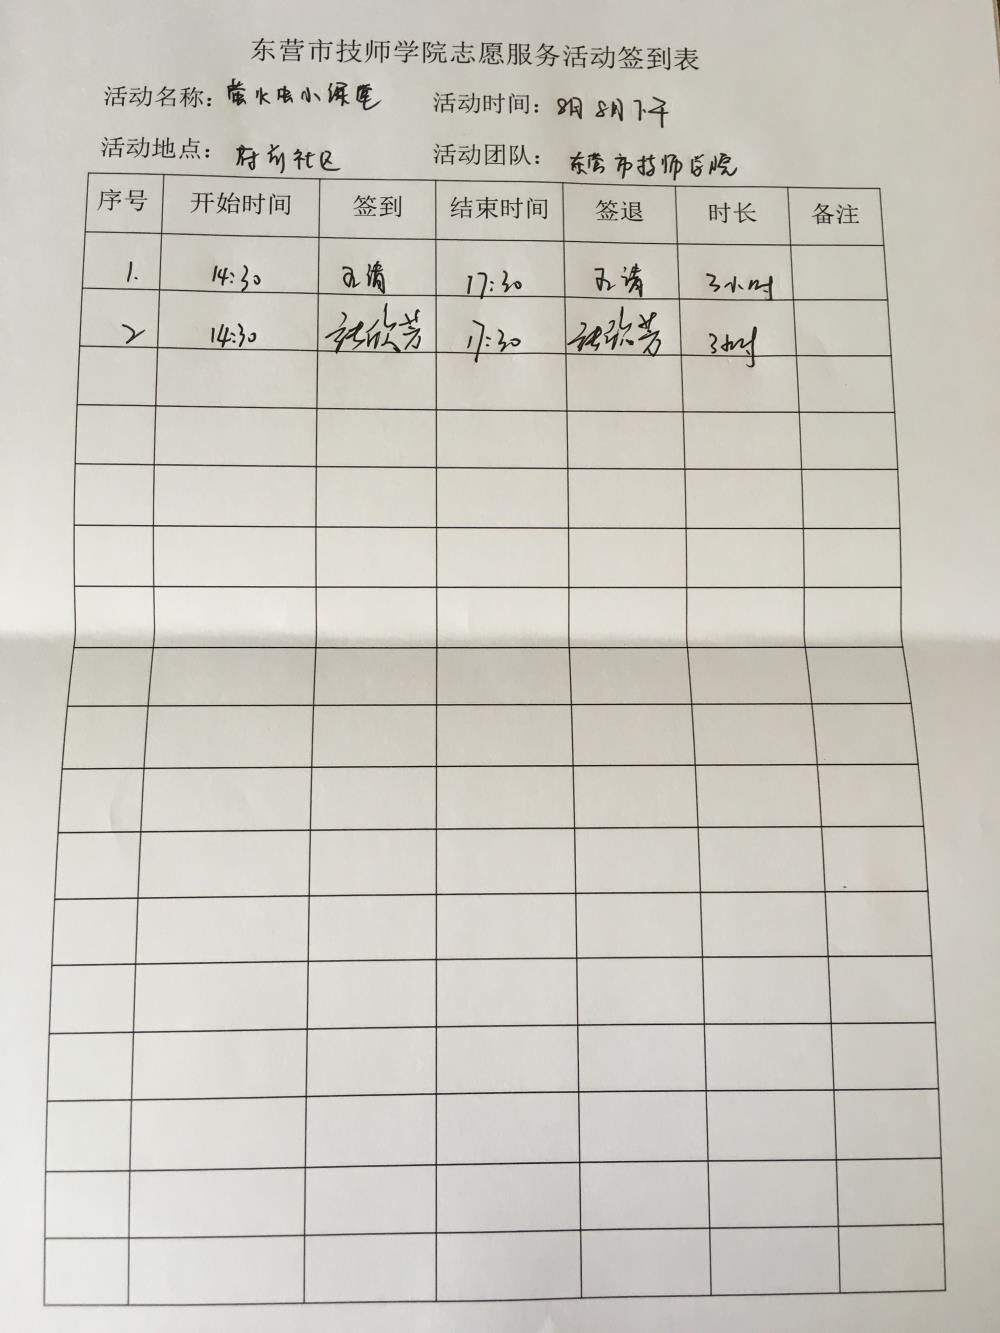 东营市技师学院志愿服务活动签到表
活动名称：萤火虫小课堂 活动时间：8月8日下午
活动地点：府前社区 活动团队：东营市技师学院
序号 开始时间 签到 结束时间 签退 时长 备注
1. 14:30 17:30 3小时
2 14:30 张欣芳 17:30 张欣芳 3小时